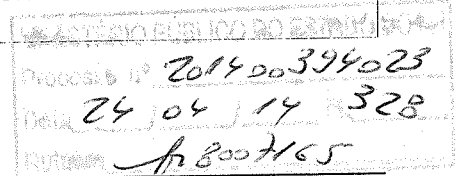 MINISTÉRIO PÚBLICO DO ESTADO
Processo nº 201400394023
Data 24 04 14 328
Rubrica 8007165